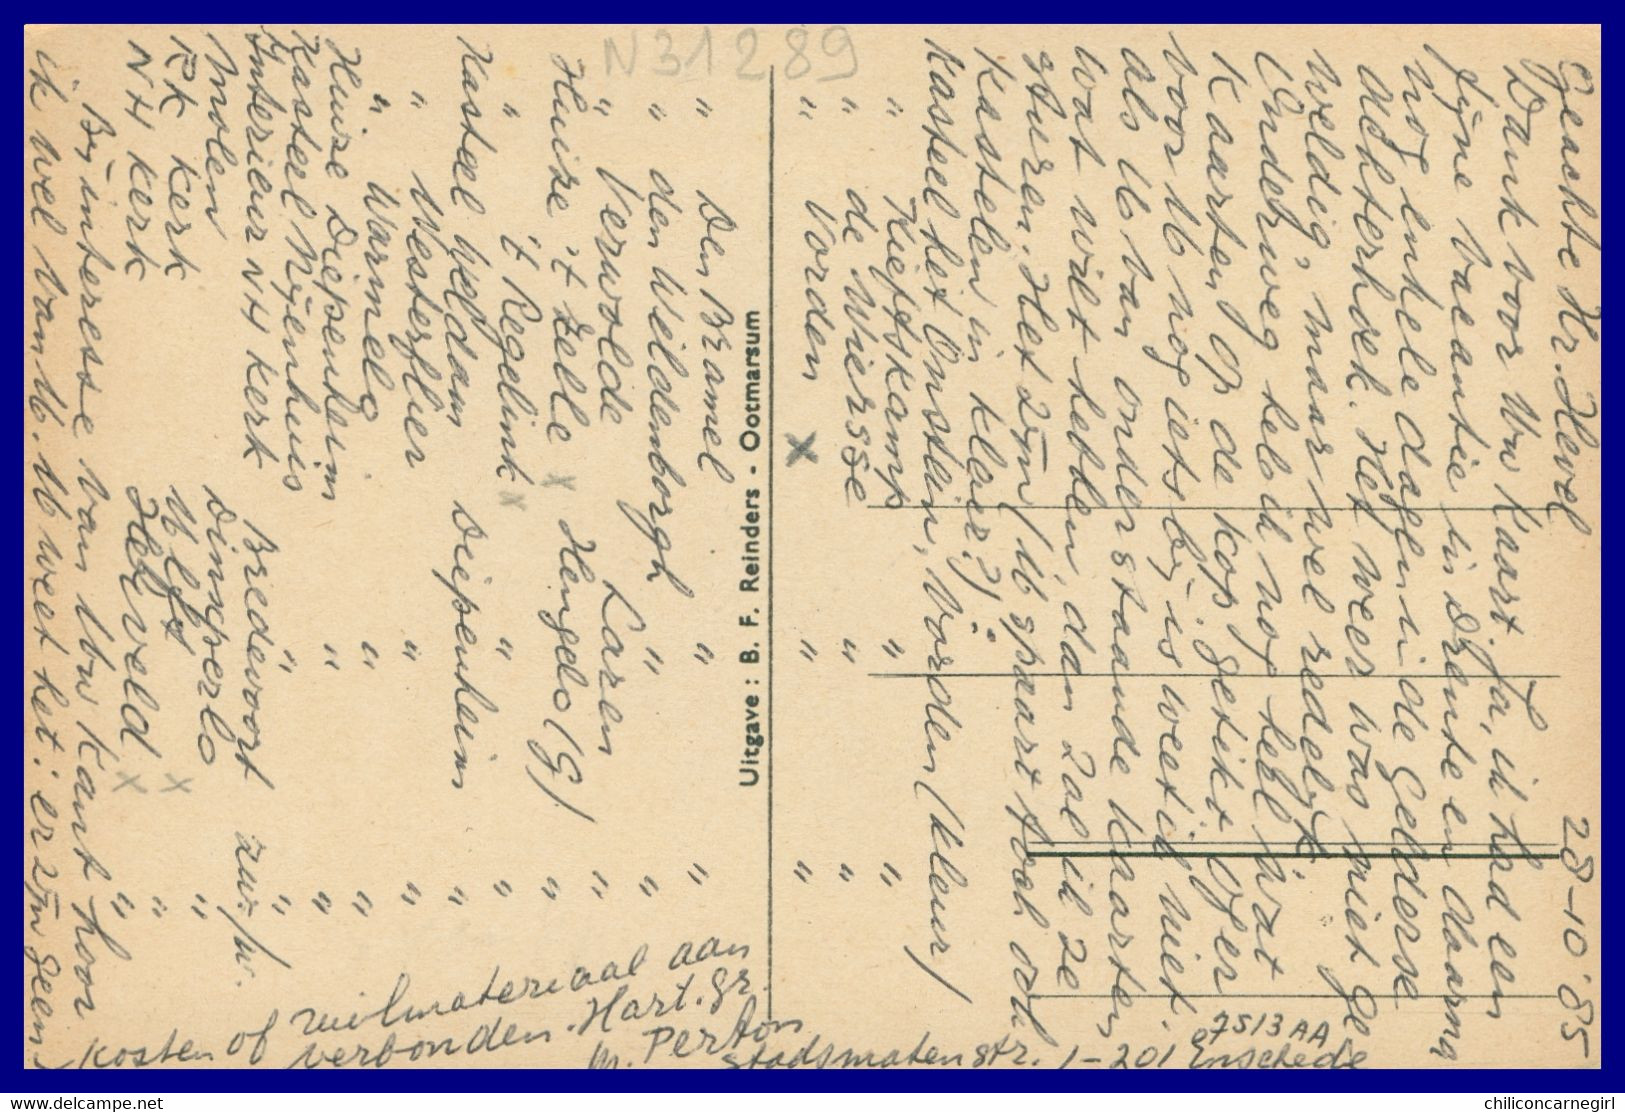 N31289
28-10-'85
Geachte Hr. Hevel
Dank voor Uw Kaart. Ja, ik had een
fijne vacantie in Drente en daarna
nog enkele dagen in de Gelderse
achterhoek. Het weer was niet ge
weldig, maar wel redelijk.
Onderweg heb ik nog heel wat
Kaarten op de kop getikt. Of er
voor U nog iets bij is weet ik niet.
als U van onderstaande Kaarten
wat wilt hebben, dan zal ik ze
sturen. Het zijn (U spaart toch ook
Kastelen in kleur?)
Kasteel het Onstein, Vorden (kleur)
" Kiefskamp " "
" de Wiersse " "
" Vorden x " "
Uitgave: B. F. Reinders - Ootmarsum
" Den Bramel " "
" den Wildenborgh " "
" Verwolde Laren "
Huize 't Zelle x Hengelo (G) "
" 't Regelink x " "
Kasteel Weldam Diepenheim "
" Westerflier " "
" Warmelo " "
Huize Diepenheim " "
Kasteel Nijenhuis " "
Interieur NH kerk Bredevoort zw./w.
Molen Dinxperlo "
RK kerk Ulft x "
NH kerk Helveld x "
Bij interesse van Uw Kant hoor
ik wel van U. U weet het: er zijn geen
kosten of ruilmateriaal aan
verbonden. Hart. gr.
M. Perton
Stadsmatenstr. 1-201 Enschede
7513 AA
https://www.delcampe.net
chiliconcarnegirl